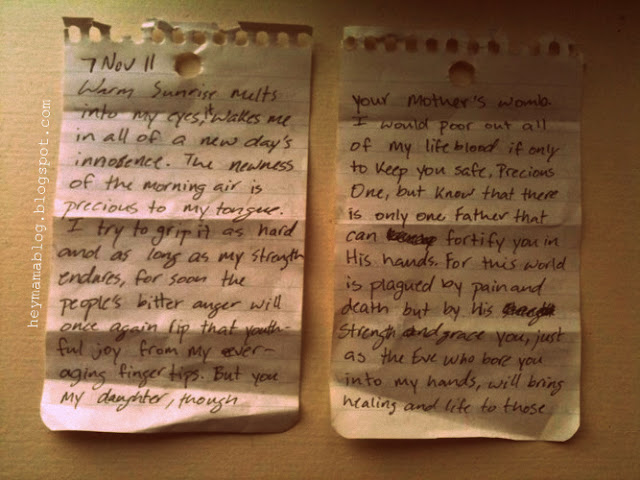 7 Nov 11
Warm Sunrise melts
into my eyes, & wakes me
in all of a new day's
innosence. The newness
of the morning air is
precious to my tongue.
I try to grip it as hard
and as long as my strength
endures, for soon the
people's bitter anger will
once again rip that youth-
ful joy from my ever-
aging fingertips. But you
my daughter, though
your Mother's womb.
I would poor out all
of my life blood if only
to keep you safe, Precious
One, but know that there
is only one Father that
can fortify you in
His hands. For this world
is plagued by pain and
death but by His
Strength and grace you, just
as the Eve who bore you
into my hands, will bring
healing and life to those
heymamablog.blogspot.com